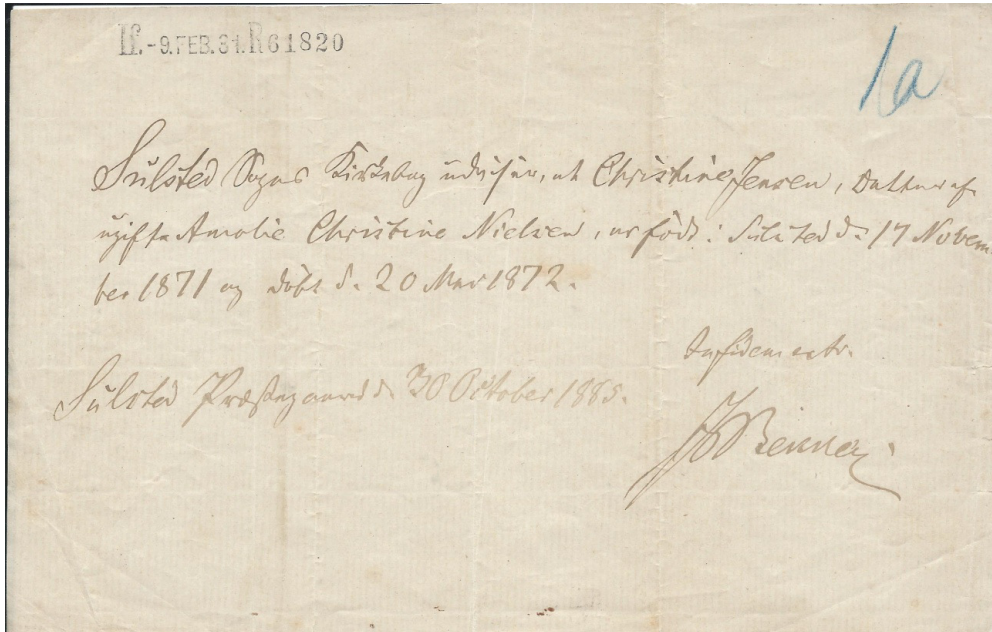 If. -9.FEB.31.R61820
1a
Sulsted Sogns Kirkebog udviser, at Christine Jensen, Datter af
ugifte Amalie Christine Nielsen, er født i Sulsted d. 17 Novem-
ber 1871 og døbt d. 20 Mai 1872.
Sulsted Præstegaard d. 30 October 1885.